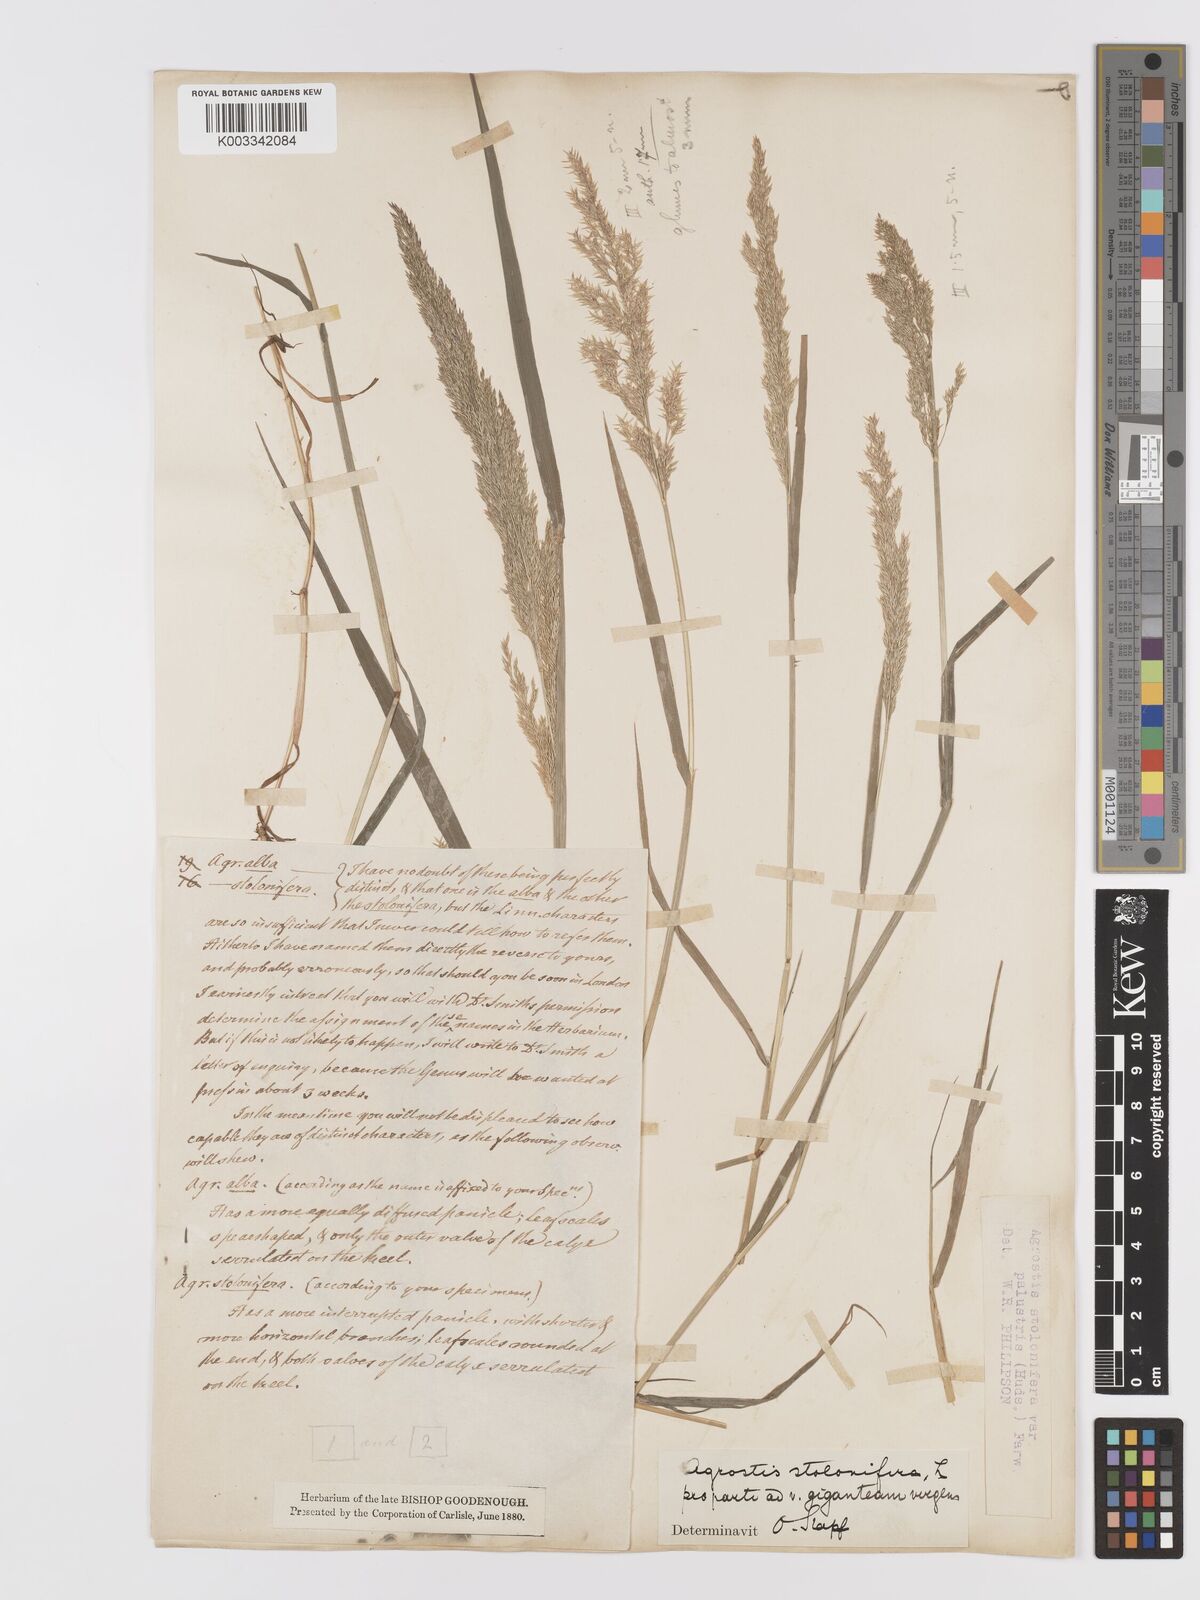 ROYAL BOTANIC GARDENS KEW
K003342084
8
III 2 mm 5-n.
anth. 1.7mm
glumes to almost
3 mm
III 1.5 mm, 5-n.
19 Agr. alba
16 — stolonifera.
I have no doubt of these being perfectly
distinct, & that one is the alba & the other
the stolonifera, but the Linn. characters
are so insufficient that I never could tell how to refer them.
Hitherto I have named them directly the reverse to yours,
and probably erroneously, so that should you be soon in London
I earnestly intreat that you will with Dr. Smiths permission
determine the assignment of these names in the Herbarium.
But if this is not likely to happen, I will write to Dr. Smith a
letter of enquiry, because the Genus will be wanted at
press in about 3 weeks.
In the mean time you will not be displeased to see how
capable they are of distinct characters, as the following observ.
will shew.
Agr. alba. (according as the name is affixed to your Specns.)
Has a more equally diffused panicle; leafscales
spearshaped, & only the outer valve of the calyx
serrulated on the keel.
Agr. stolonifera. (according to your specimens.)
Has a more interrupted panicle, with shorter &
more horizontal branches; leafscales rounded at
the end, & both valves of the calyx serrulated
on the keel.
1 and 2
Herbarium of the late BISHOP GOODENOUGH.
Presented by the Corporation of Carlisle, June 1880.
Agrostis stolonifera, L
pro parte ad v. giganteam vergens
Determinavit O. Stapf
Agrostis stolonifera var.
palustris (Huds.) Farw.
Det. W.R. PHILIPSON
inches
centimetres
Density
Don Williams
M001124
Royal Botanic Gardens
Kew
0 1 2 3 4 5 6 7 8 9 10
cm
© copyright reserved